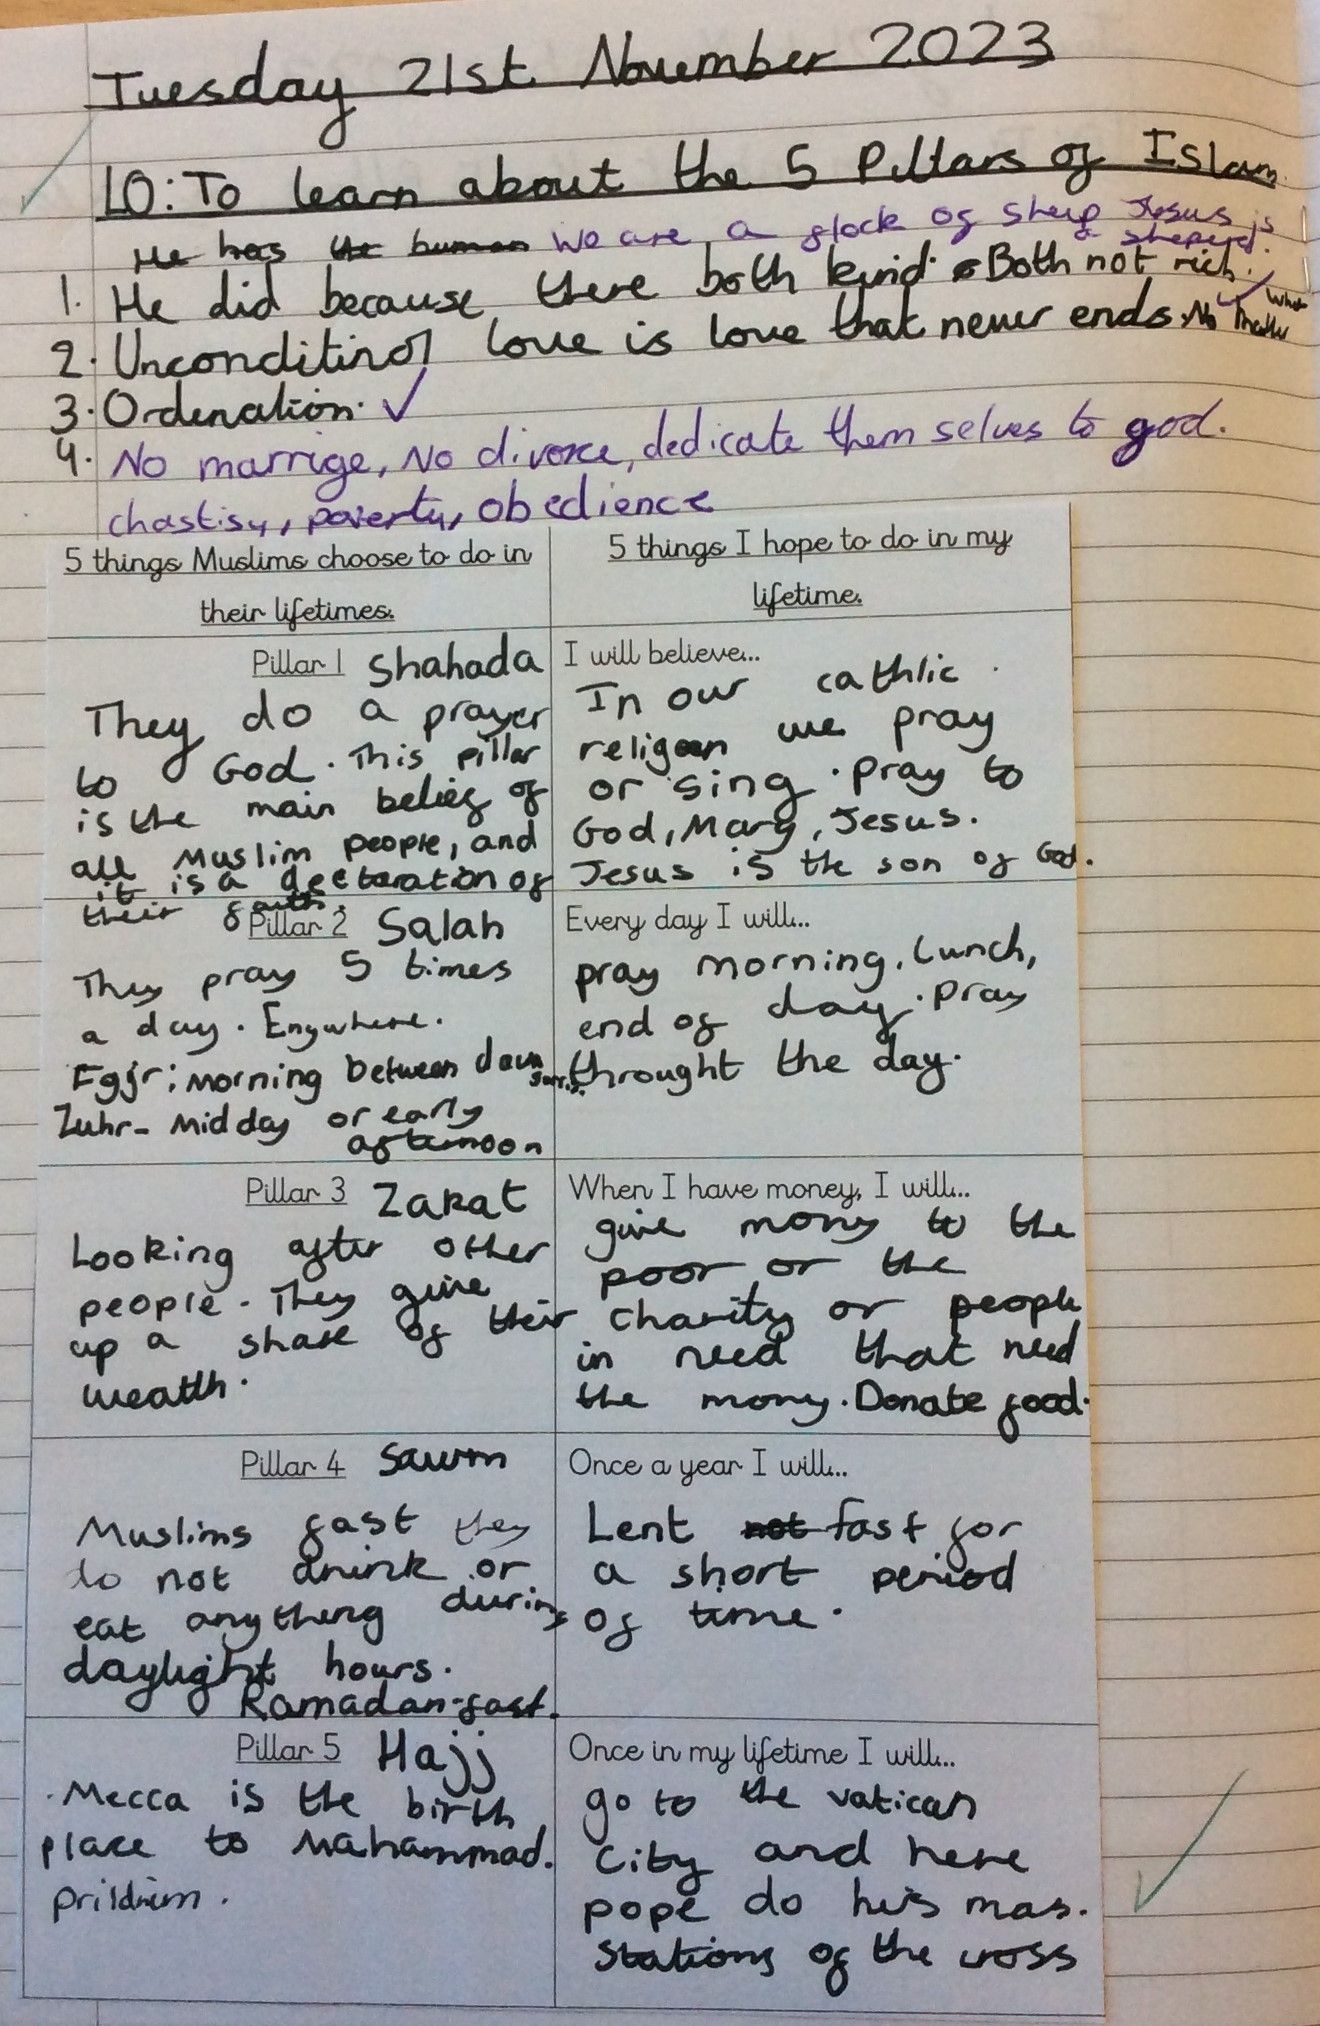 Tuesday 21st November 2023
LO: To learn about the 5 Pillars of Islam
He has the human We are a flock of sheep Jesus is
a sheperd.
1. He did because there both kind. Both not rich.
2. Unconditinol love is love that never ends. No matter what
3. Ordenation.
4. No marrige, No divorce, dedicate them selves to god.
chastisy, poverty, obedience
5 things Muslims choose to do in
their lifetimes.
5 things I hope to do in my
lifetime.
Pillar 1 Shahada
They do a prayer
to God. This pillar
is the main belief of
all Muslim people, and
it is a declaration of
their faith.
I will believe...
In our cathlic
religeon we pray
or sing. Pray to
God, Mary, Jesus.
Jesus is the son of God.
Pillar 2 Salah
They pray 5 times
a day. Enywhere.
Fgjr: Morning between dawn
Zuhr- Midday or early
afternoon
Every day I will...
pray morning, lunch,
end of day. Pray
throught the day.
Pillar 3 Zakat
Looking after other
people. They give
up a share of their
wealth.
When I have money, I will...
give mony to the
poor or the
charity or people
in need that need
the mony. Donate food.
Pillar 4 Sawm
Muslims fast they
do not drink or
eat anything during
daylight hours.
Ramadan-fast.
Once a year I will...
Lent not fast for
a short period
of time.
Pillar 5 Hajj
Mecca is the birth
place to Mahammad.
Once in my lifetime I will...
go to the vatican
City and here
pope do his mas.
Stations of the cross